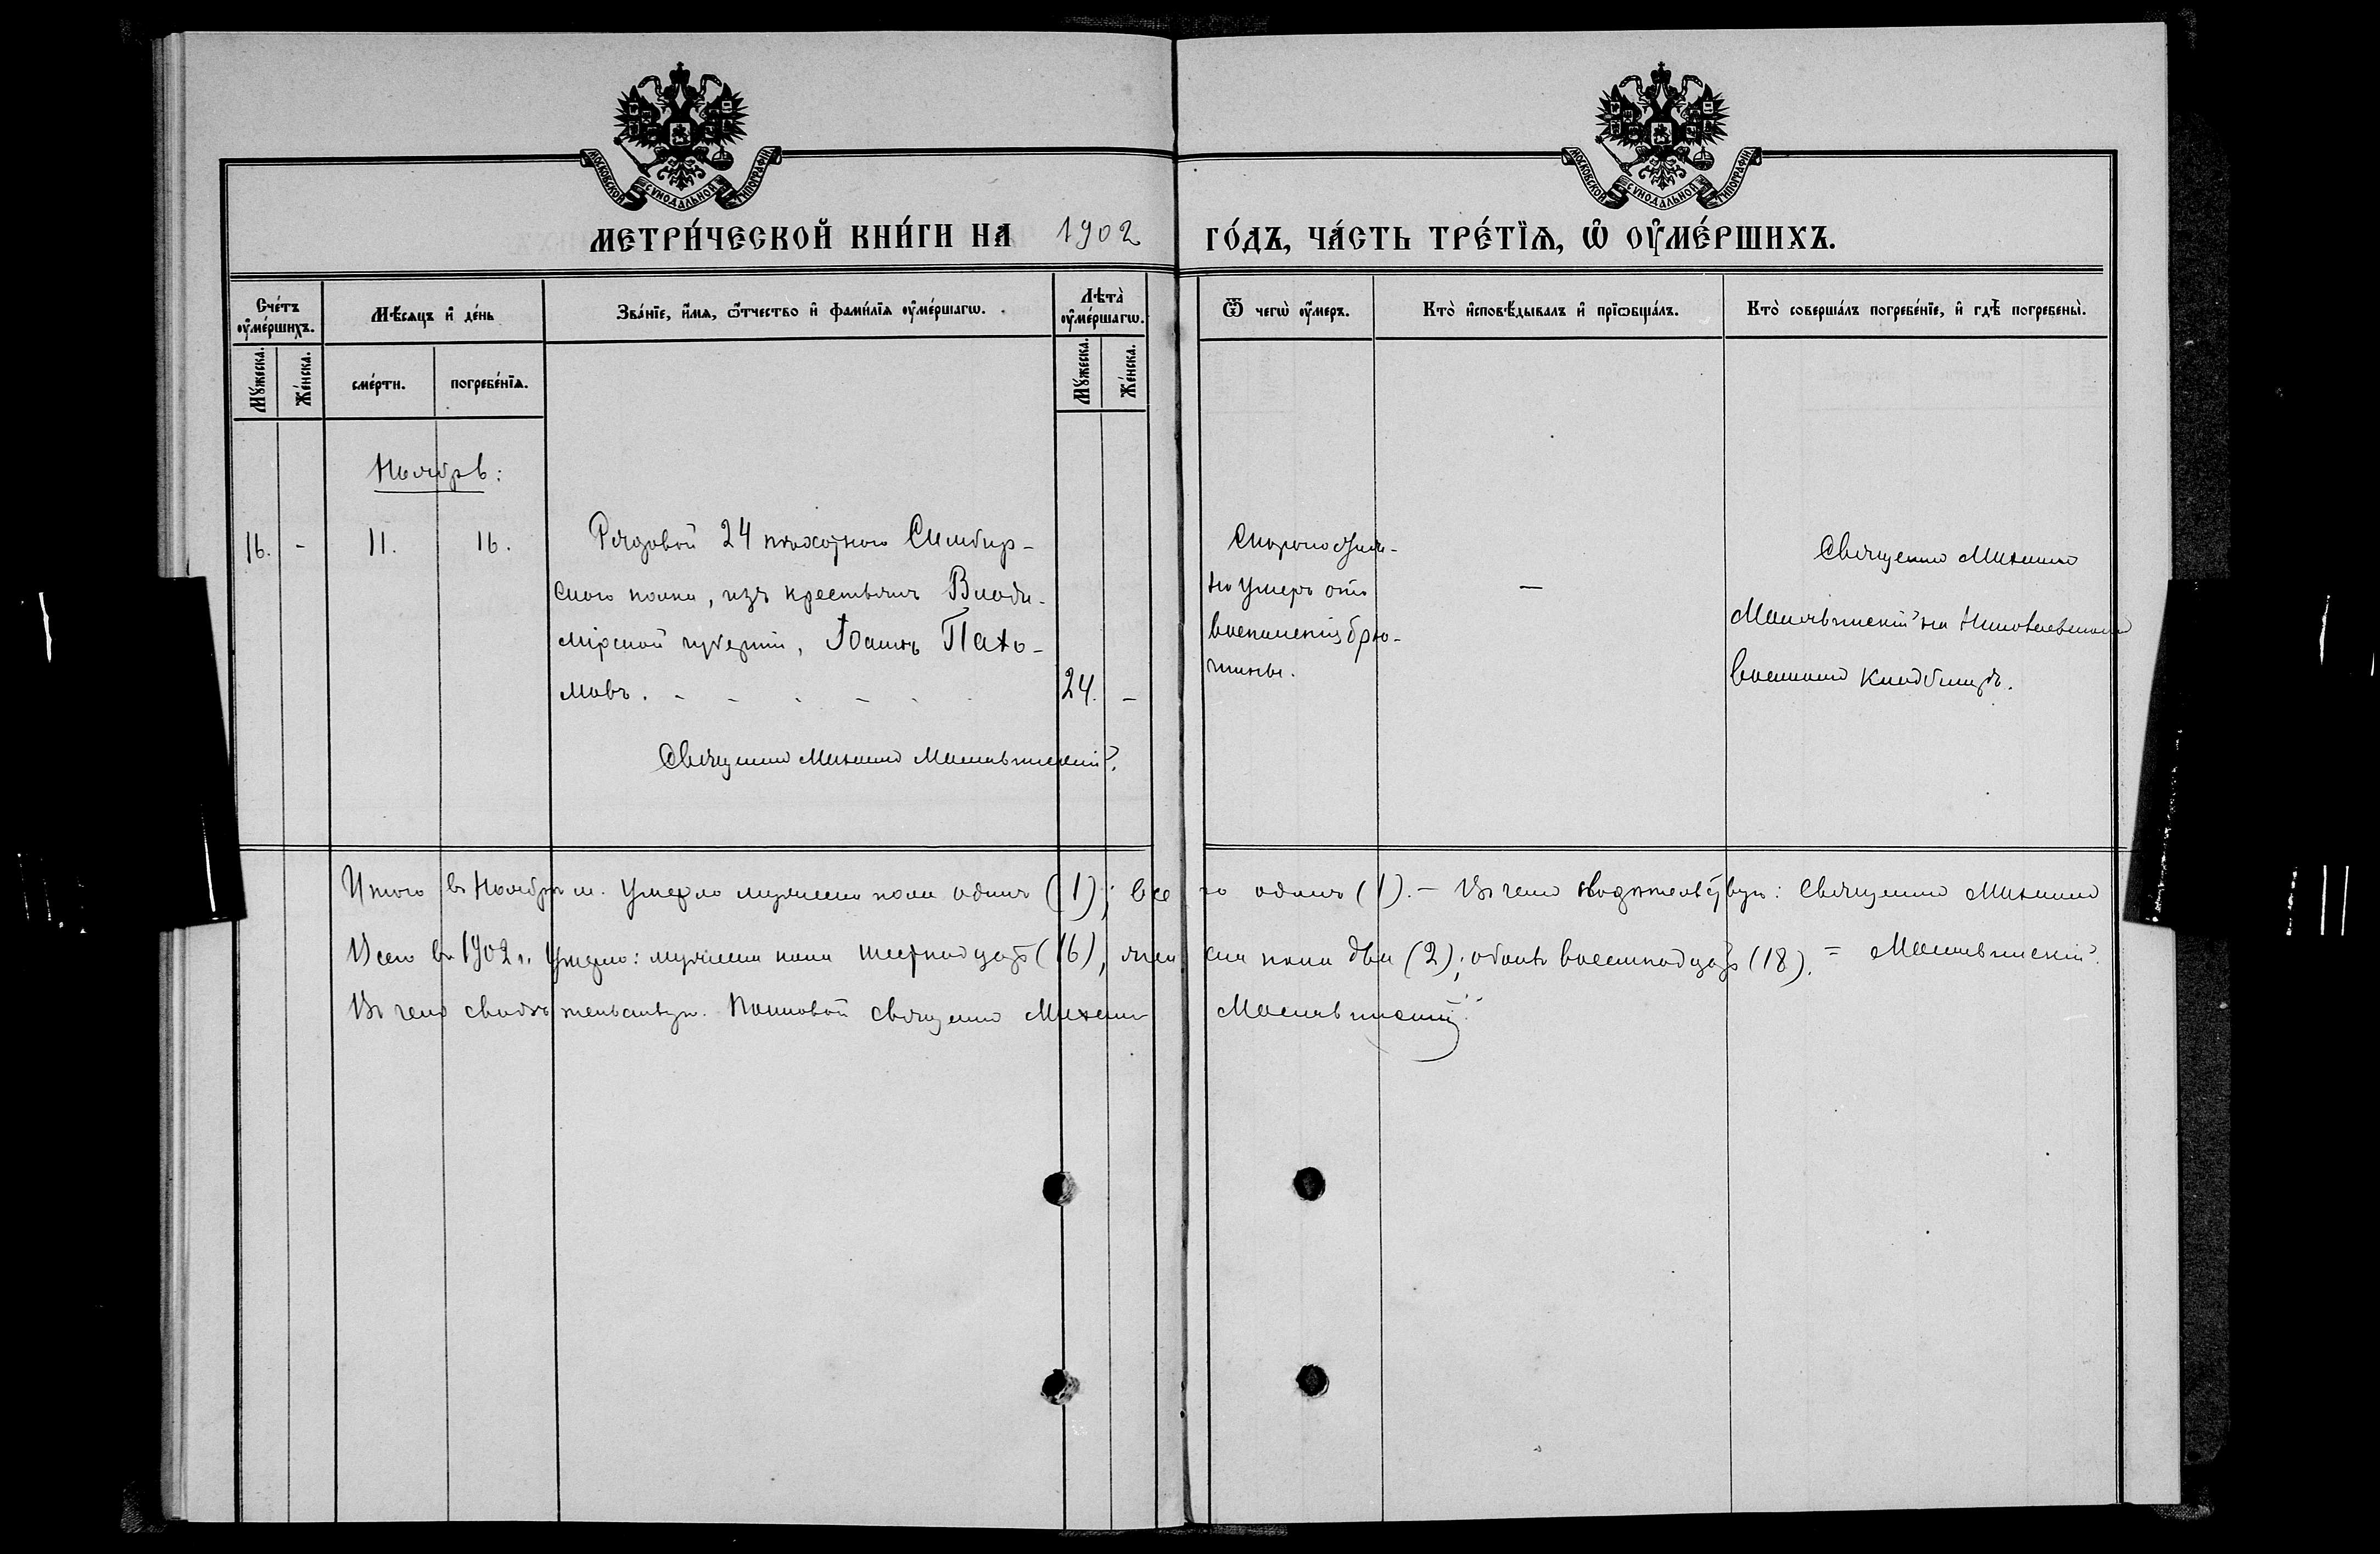 МОСКОВСКОЙ СУНОДАЛЬНОЙ ТИПОГРАФІИ
МОСКОВСКОЙ СУНОДАЛЬНОЙ ТИПОГРАФІИ
МЕТРИ́ЧЕСКОЙ КНИ́ГИ НА 1902 ГО́ДЪ, ЧА́СТЬ ТРЕ́ТЇѦ, Ѡ҆ ОУ҆МЕ́РШИХЪ.
Сче́тъ оу҆ме́ршихъ.
Мꙋ́жеска.
Же́нска.
Мѣ́сяцъ и҆ де́нь
сме́рти.
погребе́нїѧ.
Зва́нїе, и҆́мѧ, ѻ҆́тчество и҆ фами́лїѧ оу҆ме́ршагѡ.
Лѣ́та оу҆ме́ршагѡ.
Мꙋ́жеска.
Же́нска.
Ѿ чегѡ̀ оу҆́меръ.
Кто̀ и҆сповѣ́дывалъ и҆ прїѡбща́лъ.
Кто̀ соверша́лъ погребе́нїе, и҆ гдѣ̀ погребены̀.
Ноябрь:
16. - 11. 16.
Рядовой 24 пѣхотнаго Симбир-
скаго полка, изъ крестьянъ Влади-
мірской губерніи, Іоаннъ Пахо-
мовъ. - - - - - - 24. -
Священникъ Михаилъ
Скоропостиж-
но умеръ отъ
воспаленія брю-
шины.
—
Священникъ Михаилъ
на Николаевскомъ
военномъ кладбищѣ.
Итого въ Ноябрѣ м. умерло мужеска пола одинъ (1); всего одинъ (1). — Въ чемъ свидѣтельствую: Священникъ Михаилъ
Всего въ 1902 г. умерло: мужеска пола шестнадцать (16), женска пола два (2); обоего восемнадцать (18). =
Въ чемъ свидѣтельствую. Полковой священникъ Михаилъ